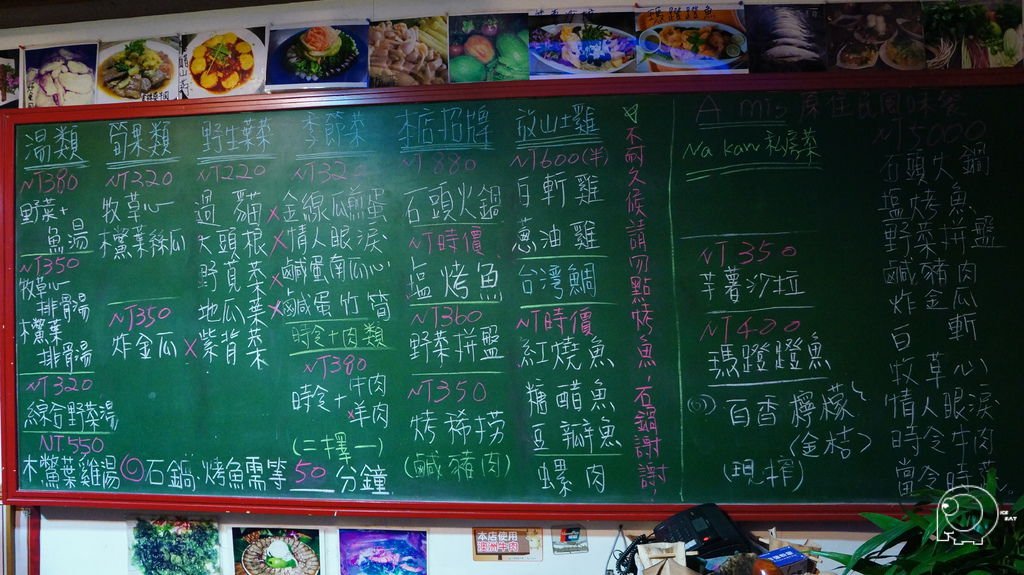 湯類
NT380
野菜+
魚湯
NT350
牧草心
排骨湯
木虌葉
排骨湯
NT320
綜合野菜湯
NT550
木虌葉雞湯
筍果類
NT320
牧草心
木虌葉絲瓜
NT350
炸金瓜
野生葉菜
NT220
過貓
大頭根
野莧菜
地瓜葉
x紫背菜
季節菜
NT320
x金線瓜煎蛋
x情人眼淚
x鹹蛋南瓜心
x鹹蛋竹筍
時令+肉類
NT380
時令+牛肉
x羊肉
(二擇一)
◎石鍋.烤魚需等50分鐘
本店招牌
NT880
石頭火鍋
NT時價
塩烤魚
NT360
野菜拼盤
NT350
烤稀撈
(鹹豬肉)
放山土雞
NT600(半)
白斬雞
蔥油雞
台灣鯛
NT時價
紅燒魚
糖醋魚
豆瓣魚
螺肉
不耐久候請勿點烤魚,石鍋謝謝,
A mis 原住民風味餐
Na kaw 私房菜
NT350
芋薯沙拉
NT400
瑪蹬蹬魚
百香檸檬
(金桔)
(現榨)
NT5000
石頭火鍋
塩烤魚
野菜拼盤
鹹豬肉
炸金瓜
白斬
牧草心
情人眼淚
時令牛肉
當令時蔬
瑪蹬蹬魚
本店使用
澳洲牛肉
ICE
EAT